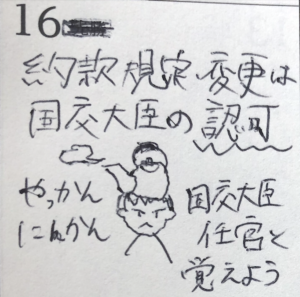 16
約款規定変更は
国交大臣の認可
やっかん
にんかん
国交大臣
任官と
覚えよう